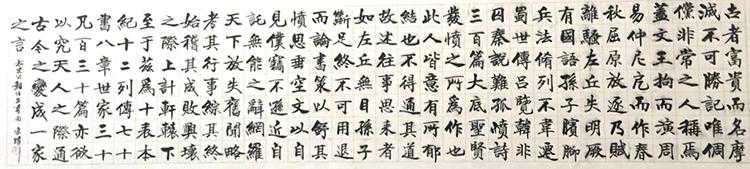 古者富貴而名摩
滅不可勝記唯倜
儻非常之人稱焉
蓋文王拘而演周
易仲尼厄而作春
秋屈原放逐乃賦
離騷左丘失明厥
有國語孫子臏腳
兵法脩列不韋遷
蜀世傳呂覽韓非
囚秦說難孤憤詩
三百篇大底聖賢
發憤之所為作也
此人皆意有所郁
結也不得通其道
故述往事思來者
如左丘無目孫子
斷足終不可用退
而論書策以舒其
憤思垂空文以自
見僕竊不遜近自
託無能之辭網羅
天下放失舊聞略
考其行事綜其終
始稽其成敗興壞
之際上計軒轅下
至于茲為十表本
紀十二列傳七十
書八章世家三十
凡百三十篇亦欲
以究天人之際通
古今之變成一家
之言